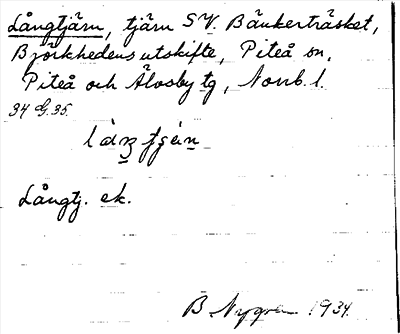 Långtjärn, tjärn S.V. Bänkerträsket,
Björkhedens utskifte, Piteå sn,
Piteå och Älvsby tg, Norrb. l.
34 G. 35.
Långtj. ek.
B Nygren 1934.